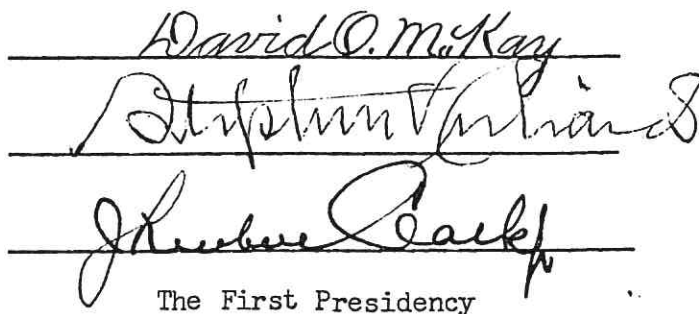 David O. McKay
Stephen L Richards
J Reuben Clark Jr
The First Presidency